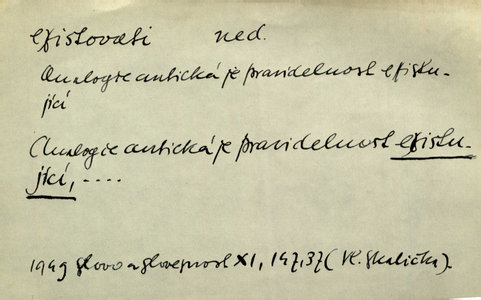 existovati ned.
Analogie antická je pravidelnost existu-
jící
Analogie antická je pravidelnost existu-
jící, ....
1949 Slovo a slovesnost XI, 147,37 (Vl. Skalička).